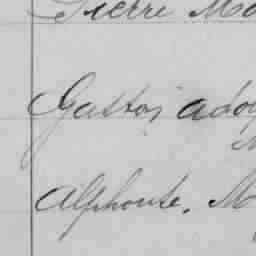 Pierre Mo
Gaston ado
M
Alphonse. M